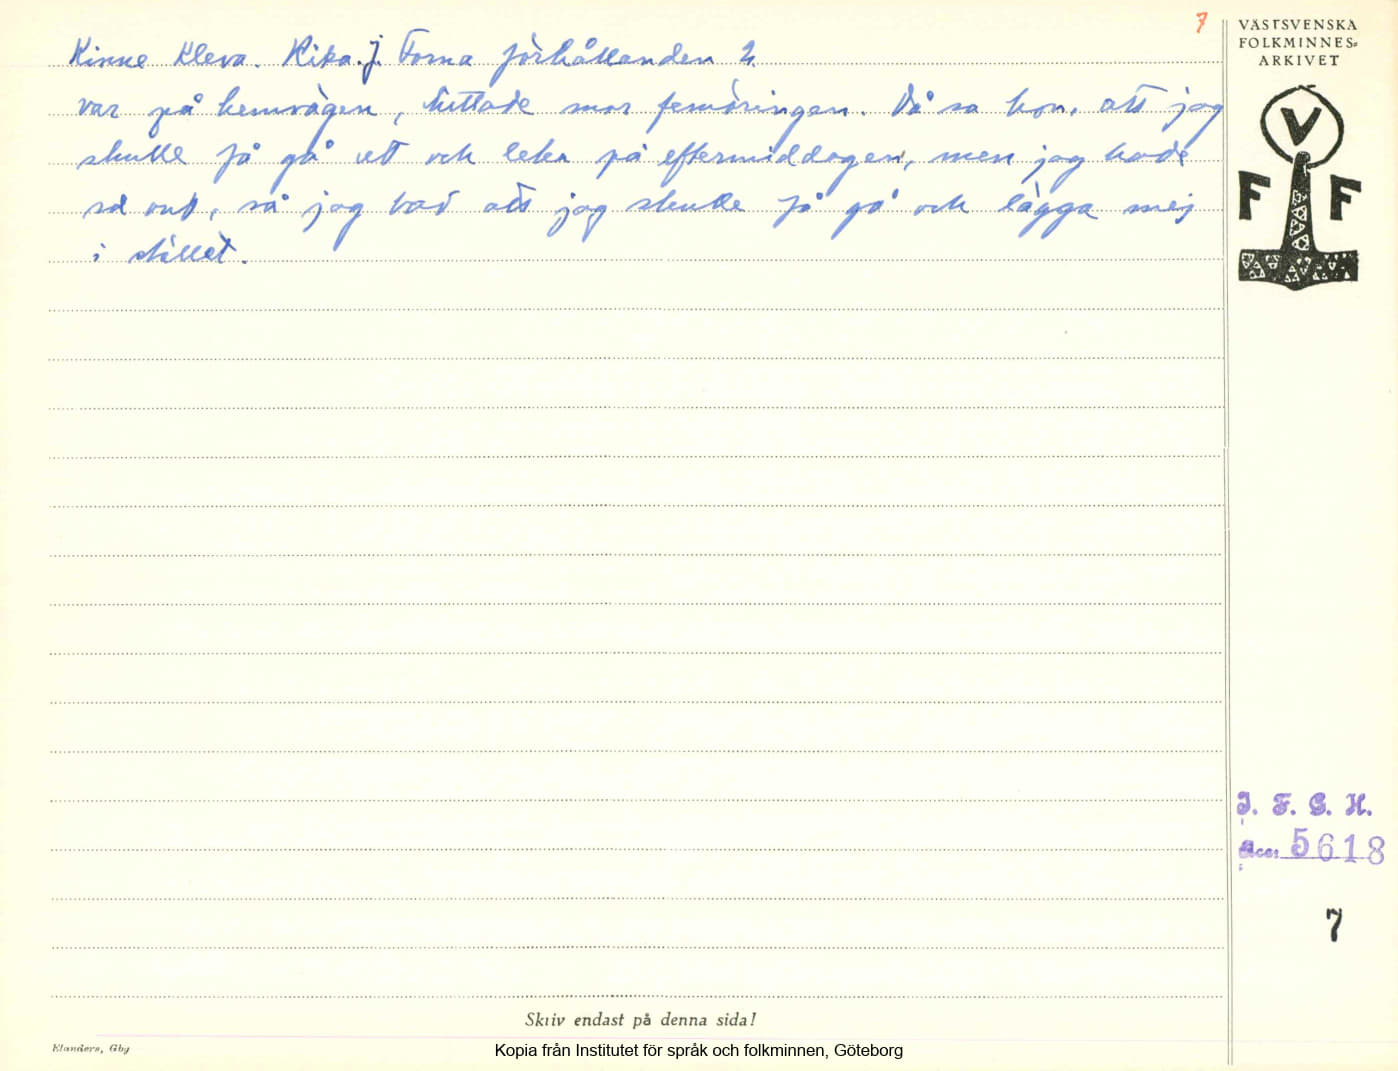 7
VÄSTSVENSKA
FOLKMINNES=
ARKIVET
V
F F
Kinne Kleva. Rika.j. Forna förhållanden 2.
var på hemvägen, hittade mor femöringen. Då sa hon, att jag
skulle få gå ut och leka på eftermiddagen, men jag hade
så ont, så jag bad att jag skulle få gå och lägga mej
i stället.
I. F. G. H.
Acc: 5618
7
Skriv endast på denna sida!
Elanders, Gbg
Kopia från Institutet för språk och folkminnen, Göteborg